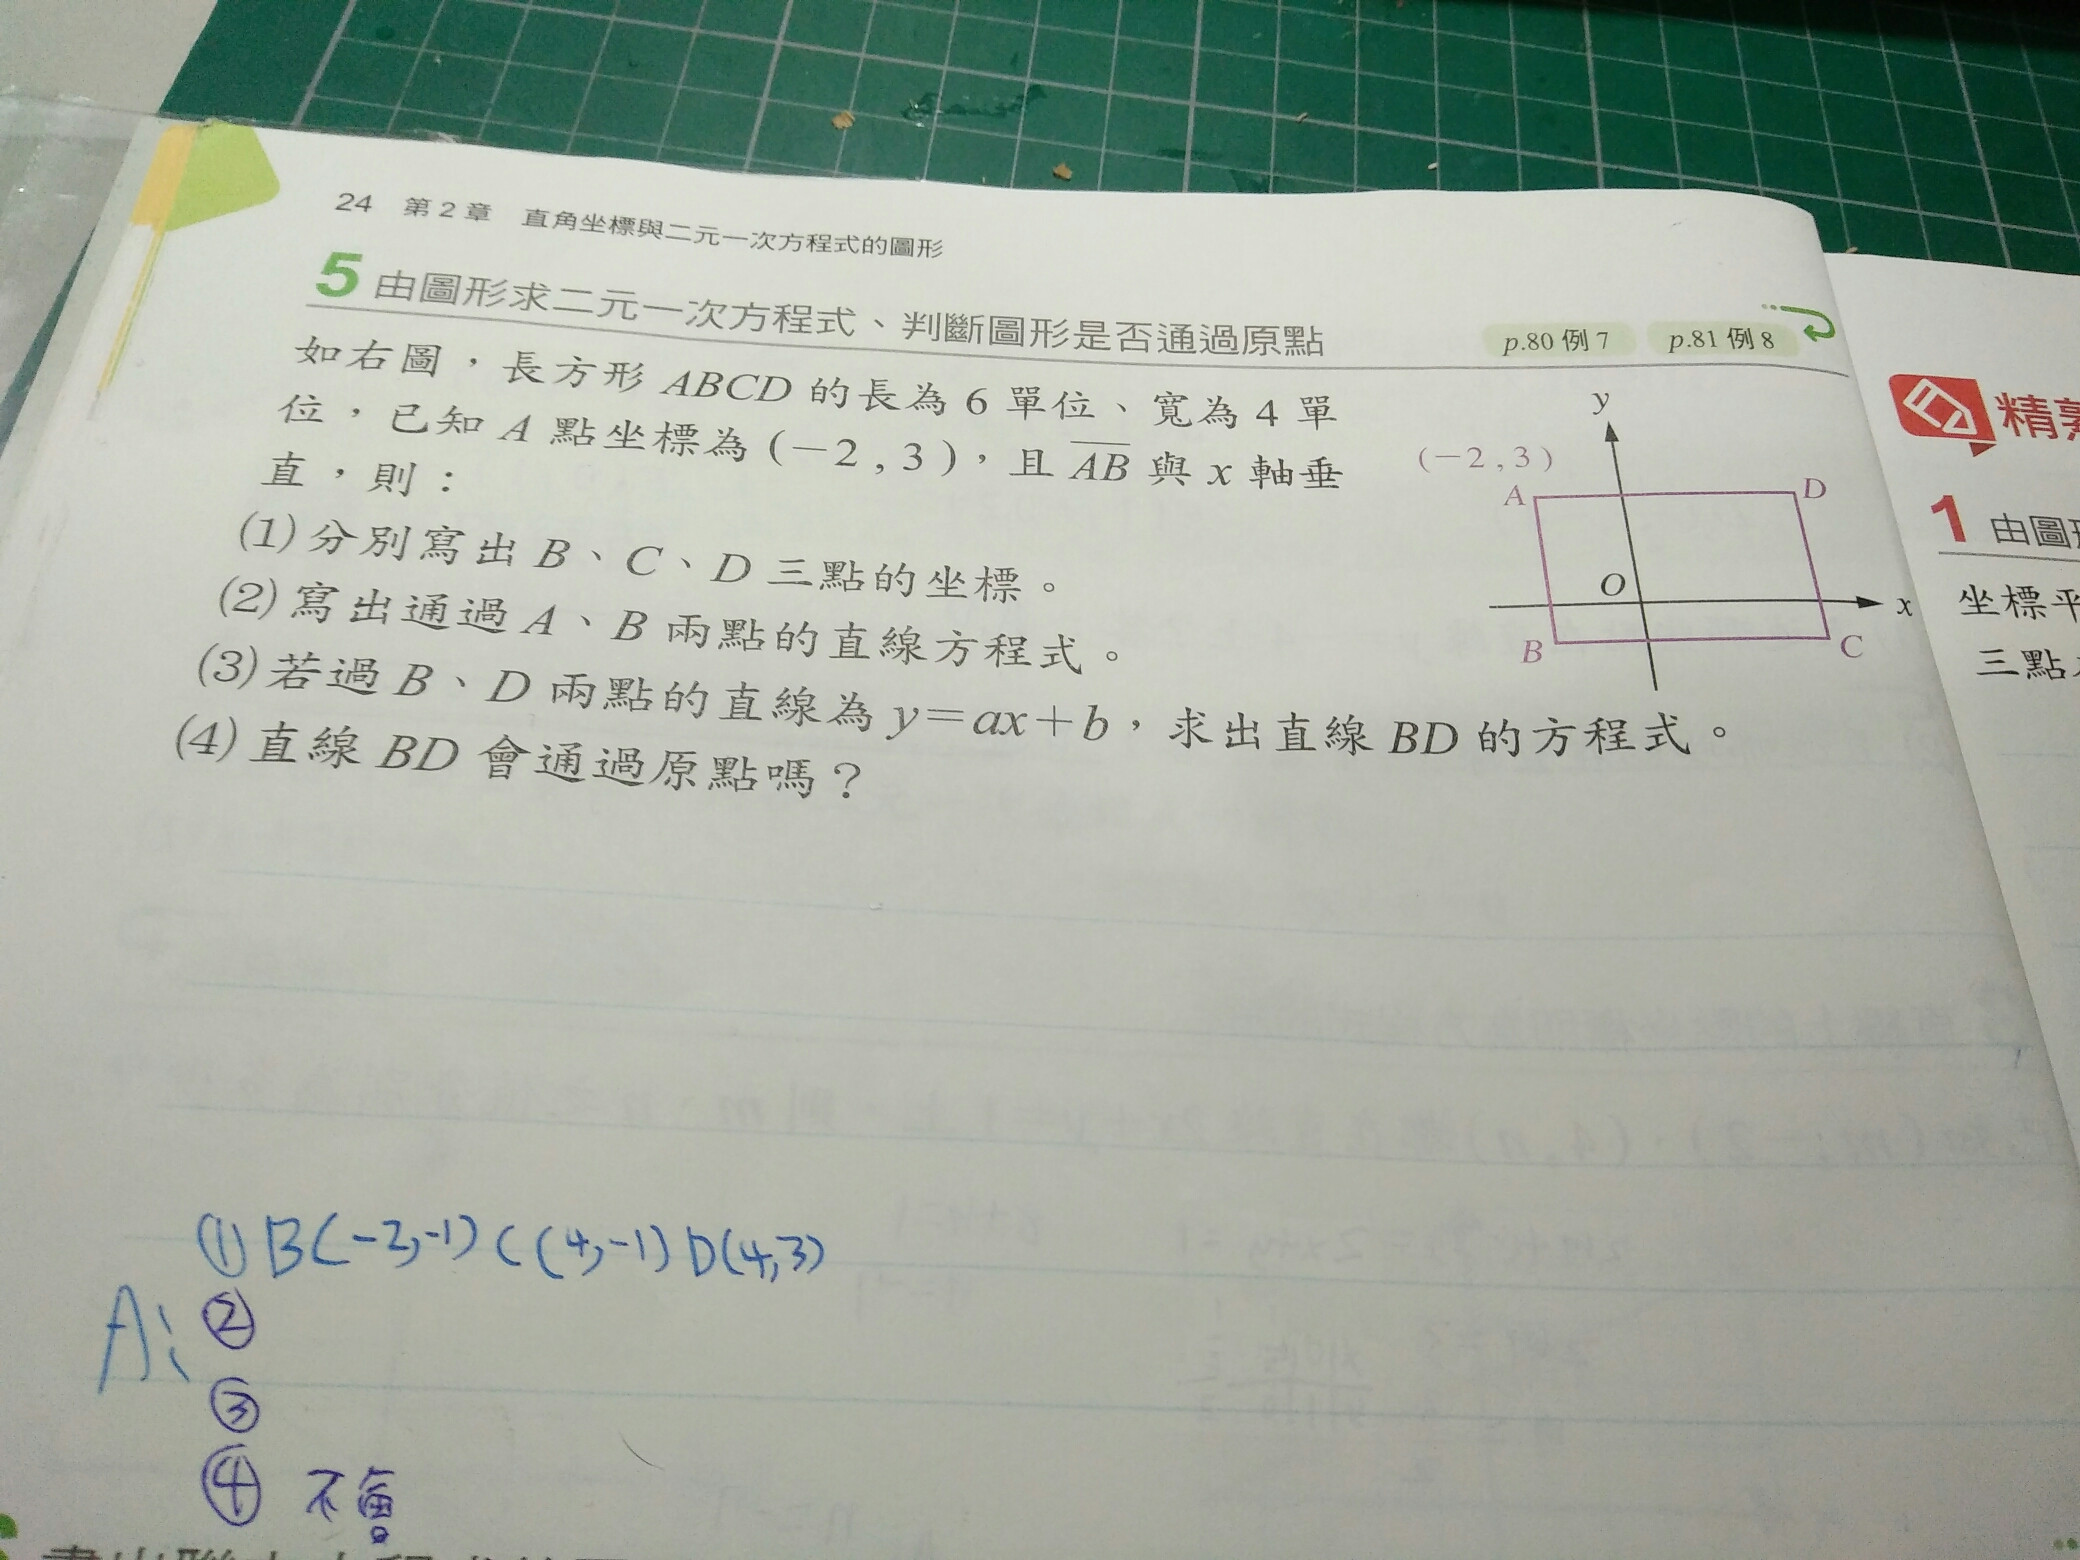 24 第2章 直角坐標與二元一次方程式的圖形
5 由圖形求二元一次方程式、判斷圖形是否通過原點
p.80 例7 p.81 例8
如右圖，長方形 ABCD 的長為 6 單位、寬為 4 單
位，已知 A 點坐標為 (−2 , 3)，且 AB 與 x 軸垂
直，則：
(1) 分別寫出 B、C、D 三點的坐標。
(2) 寫出通過 A、B 兩點的直線方程式。
(3) 若過 B、D 兩點的直線為 y=ax+b，求出直線 BD 的方程式。
(4) 直線 BD 會通過原點嗎？
y
(−2 , 3)
A D
O
x
B C
精熟
1 由圖形
坐標平
三點
A:
① B(-2,-1) C(4,-1) D(4,3)
②
③
④ 不會